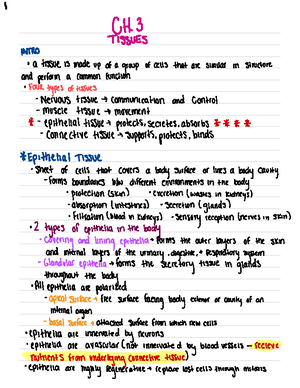 CH. 3
TISSUES
INTRO
• a tissue is made up of a group of cells that are similar in structure
and perform a common function
• Four types of tissues
- Nervous tissue → communication and control
- muscle tissue → movement
* - epithelial tissue → protects, secretes, absorbs * * * *
- Connective tissue → supports, protects, binds
*Epithelial Tissue
- Sheet of cells that covers a body surface or lines a body cavity
- Forms boundaries b/w different environments in the body
• protection (skin) • excretion (wastes in kidneys)
• absorption (intestines) • Secretion (glands)
• filtration (blood in kidneys) • Sensory reception (nerves in skin)
• 2 types of epithelia in the body
- Covering and lining epithelia → forms the outer layers of the skin
and internal layers of the urinary, digestive, + respiratory system
- Glandular epithelia → forms the secretory tissue in glands
throughout the body
• All epithelia are polarized
- apical surface → free surface facing body exterior or cavity of an
internal organ
- basal surface → attached surface from which new cells
• epithelia are innervated by neurons
• epithelia are avascular (not innervated by blood vessels - recieve
nutrients from underlying connective tissue)
• epithelia are highly regenerative → replace lost cells through mitosis